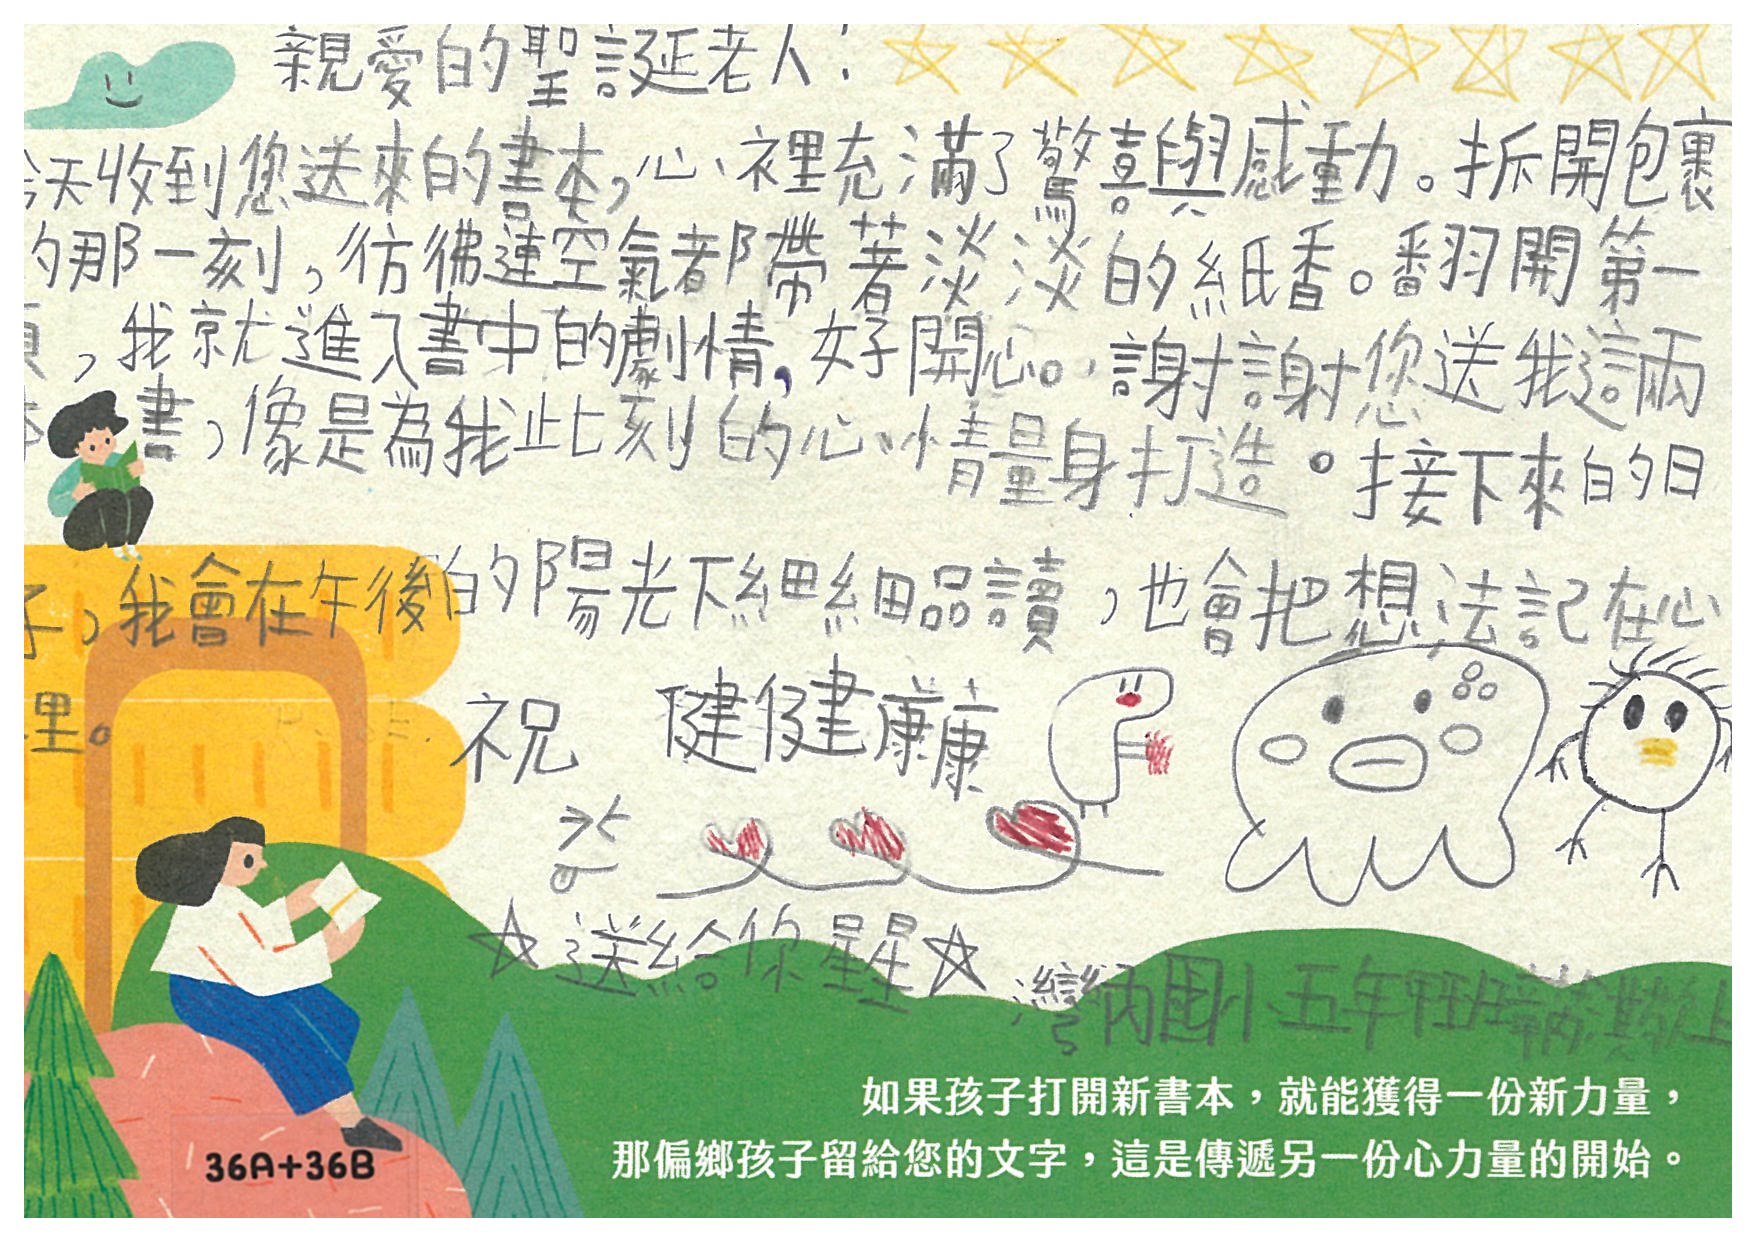 親愛的聖誕老人：
今天收到您送來的書本，心裡充滿了驚喜與感動。拆開包裹
的那一刻，彷彿連空氣都帶著淡淡的紙香。翻開第一
頁，我就進入書中的劇情，好開心。謝謝您送我這兩
本書，像是為我此刻的心情量身打造。接下來的日
子，我會在午後的陽光下細細品讀，也會把想法記在心
裡。
祝 健健康康
☆送給你星星☆
灣內國小五年 班 上
如果孩子打開新書本，就能獲得一份新力量，
那偏鄉孩子留給您的文字，這是傳遞另一份心力量的開始。
36A+36B